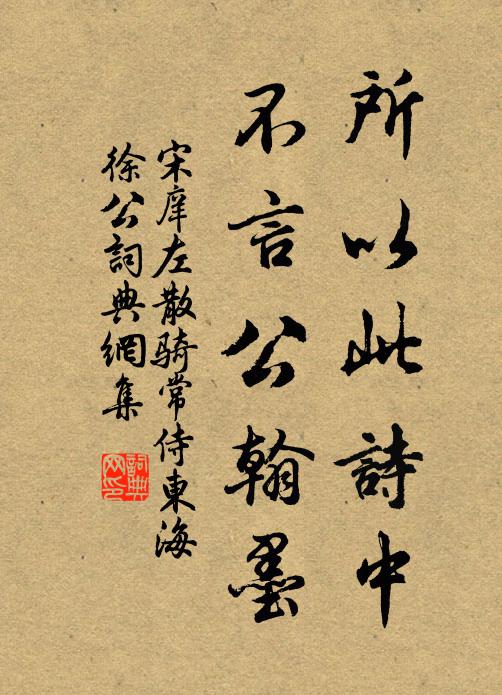 所以此詩中
不言公翰墨
宋庠左散骑常侍東海
徐公詞典網集
詞典
网印